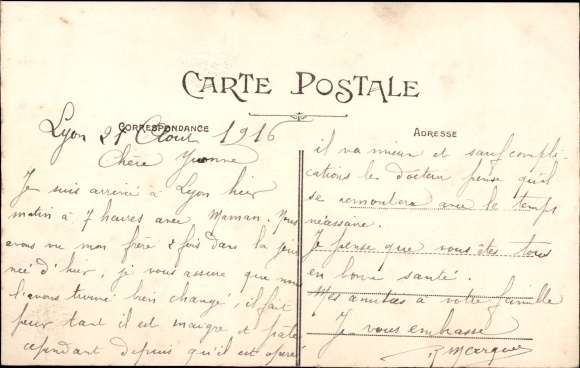 CARTE POSTALE
CORRESPONDANCE
ADRESSE
Lyon 21 Aout 1916
Chère Yvonne
Je suis arrivée à Lyon hier
matin à 7 heures avec Maman. Nous
avons vu mon frère 2 fois dans la jour
née d'hier, je vous assure que nous
l'avons trouvé bien changé, il fait
peur tant il est maigre et pâle
cependant depuis qu'il est opéré
il va mieux et sauf compli-
cations le docteur pense qu'il
se remontera avec le temps
nécessaire.
Je pense que vous êtes tous
en bonne santé.
Mes amitiés à votre famille
Je vous embrasse